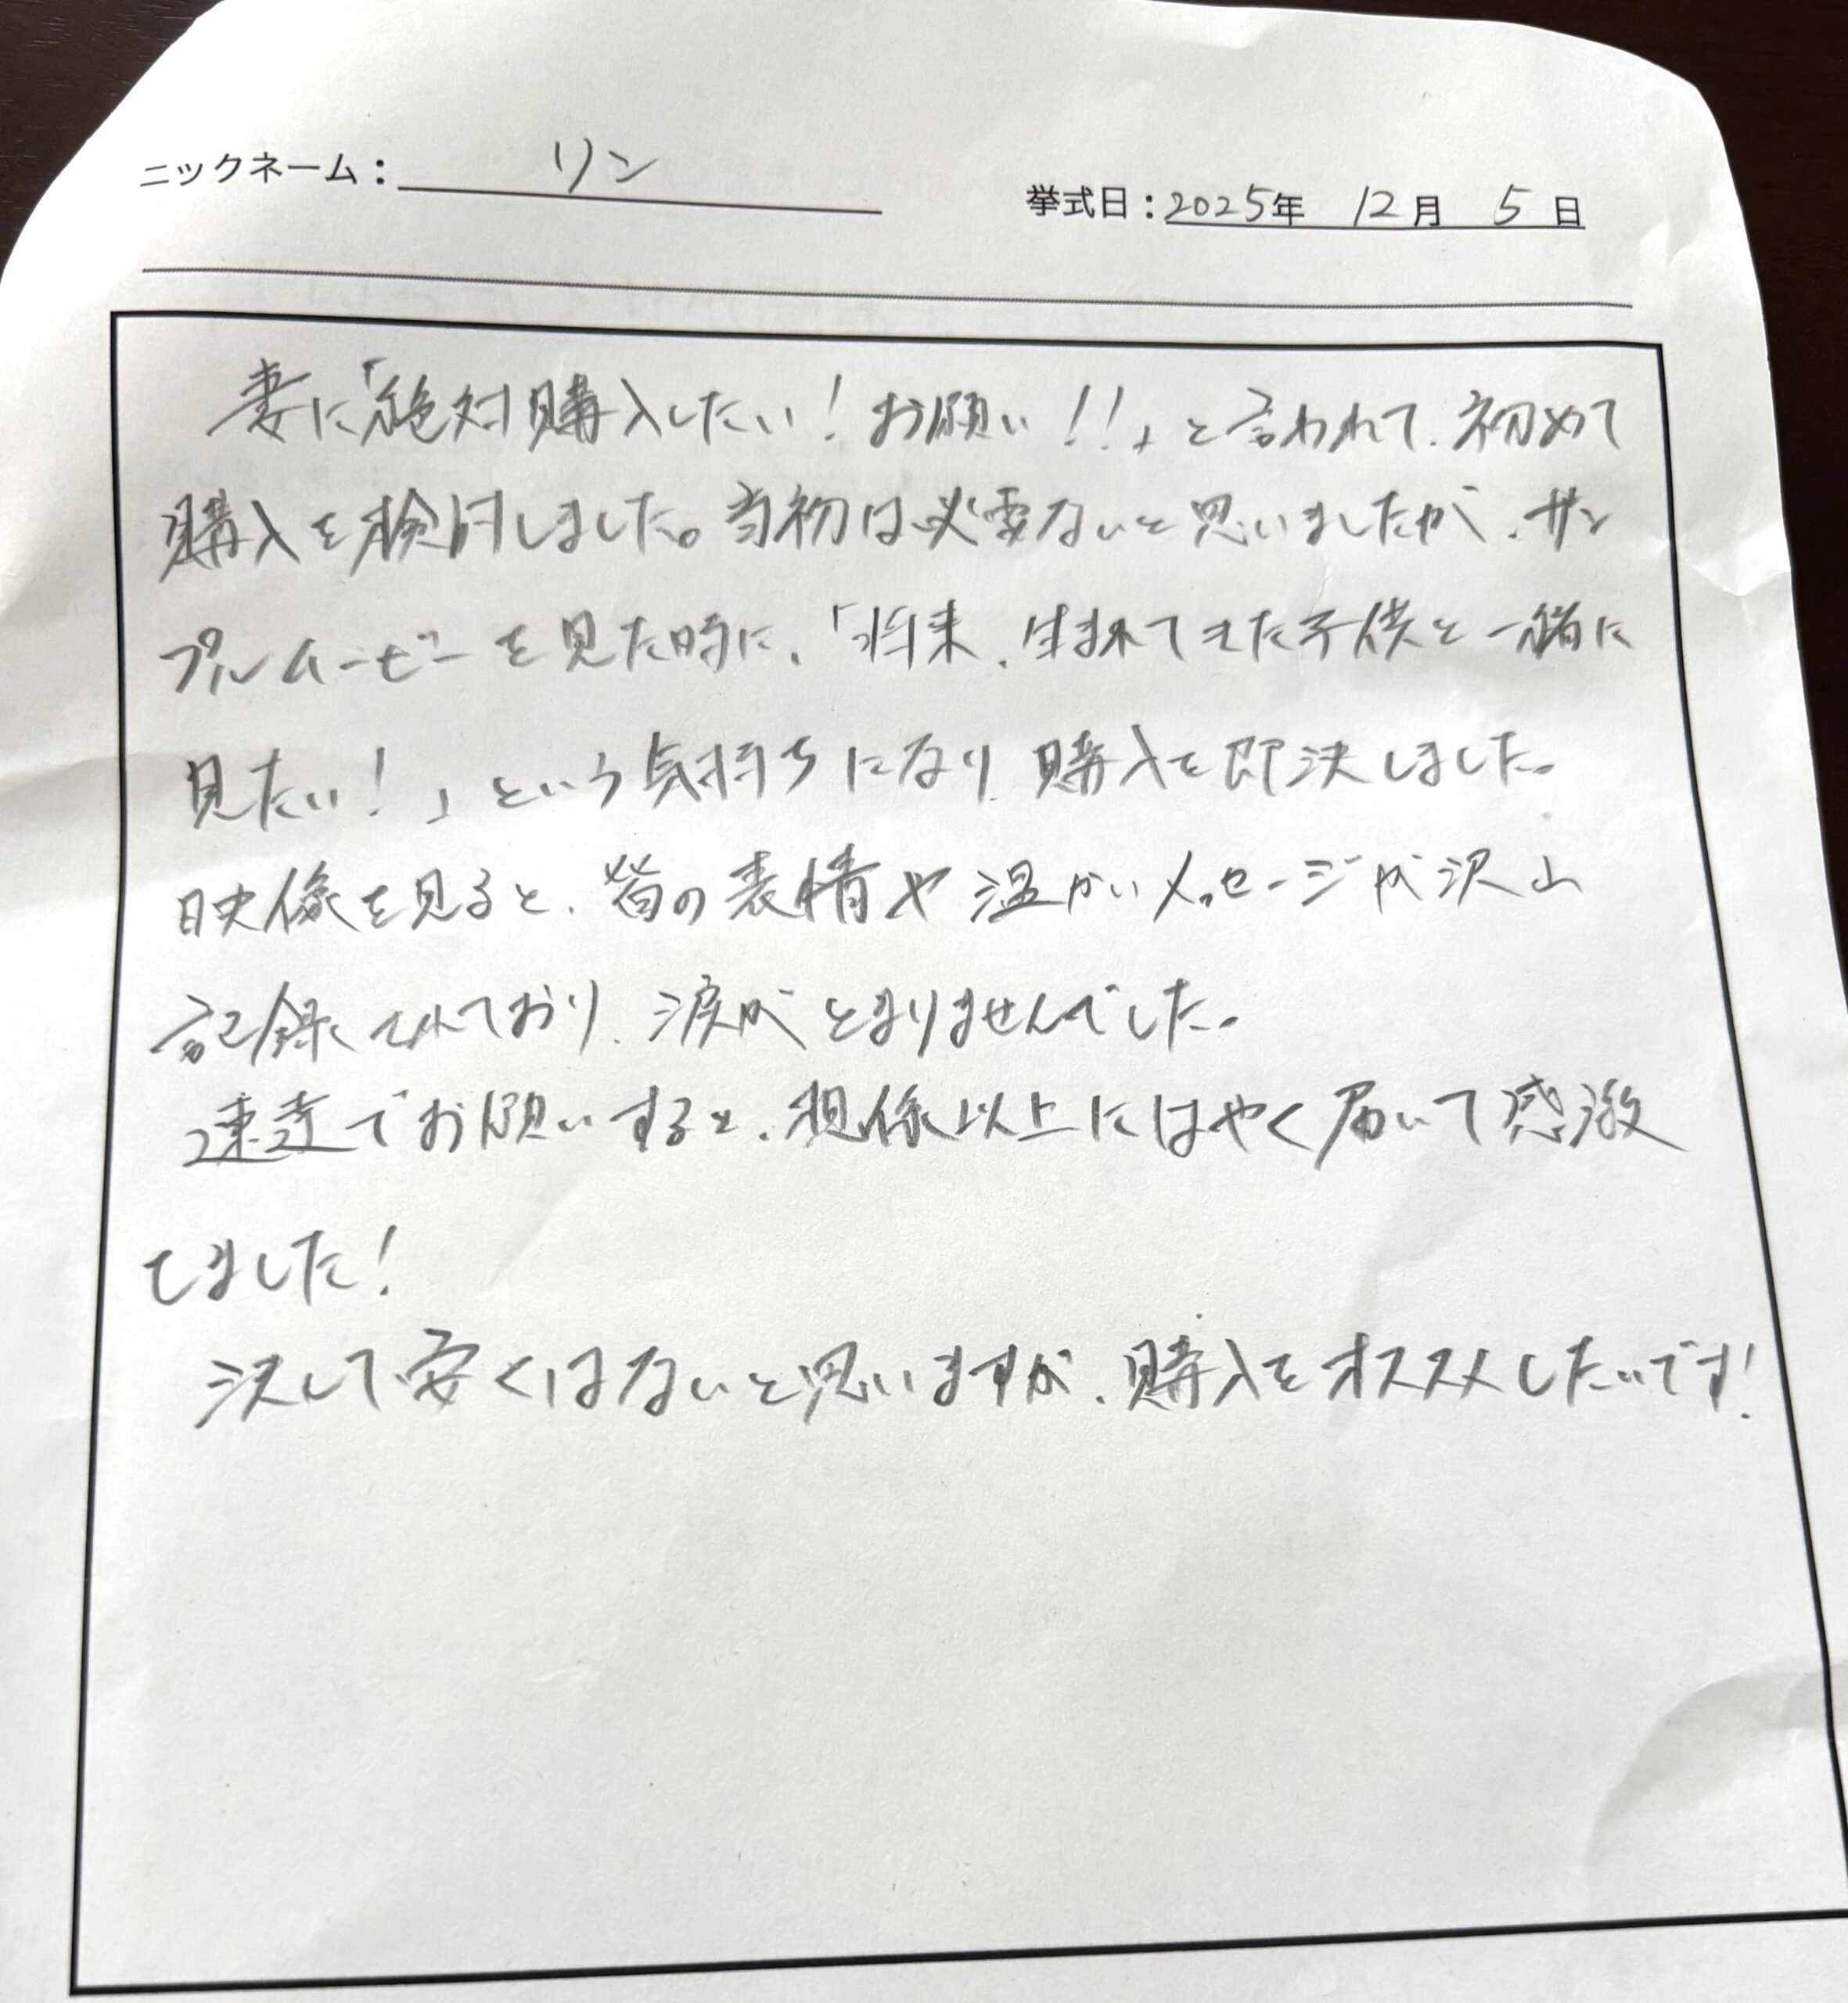 ニックネーム： リン
挙式日：2025年 12月 5日
妻に「絶対購入したい！お願い！！」と言われて、初めて
購入を検討しました。当初は必要ないと思いましたが、サン
プルムービーを見た時に、「将来、生まれてきた子供と一緒に
見たい！」という気持ちになり、購入を即決しました。
映像を見ると、皆の表情や温かいメッセージが沢山
記録されており、涙がとまりませんでした。
速達でお願いすると、想像以上にはやく届いて感激
しました！
決して安くはないと思いますが、購入をオススメしたいです！